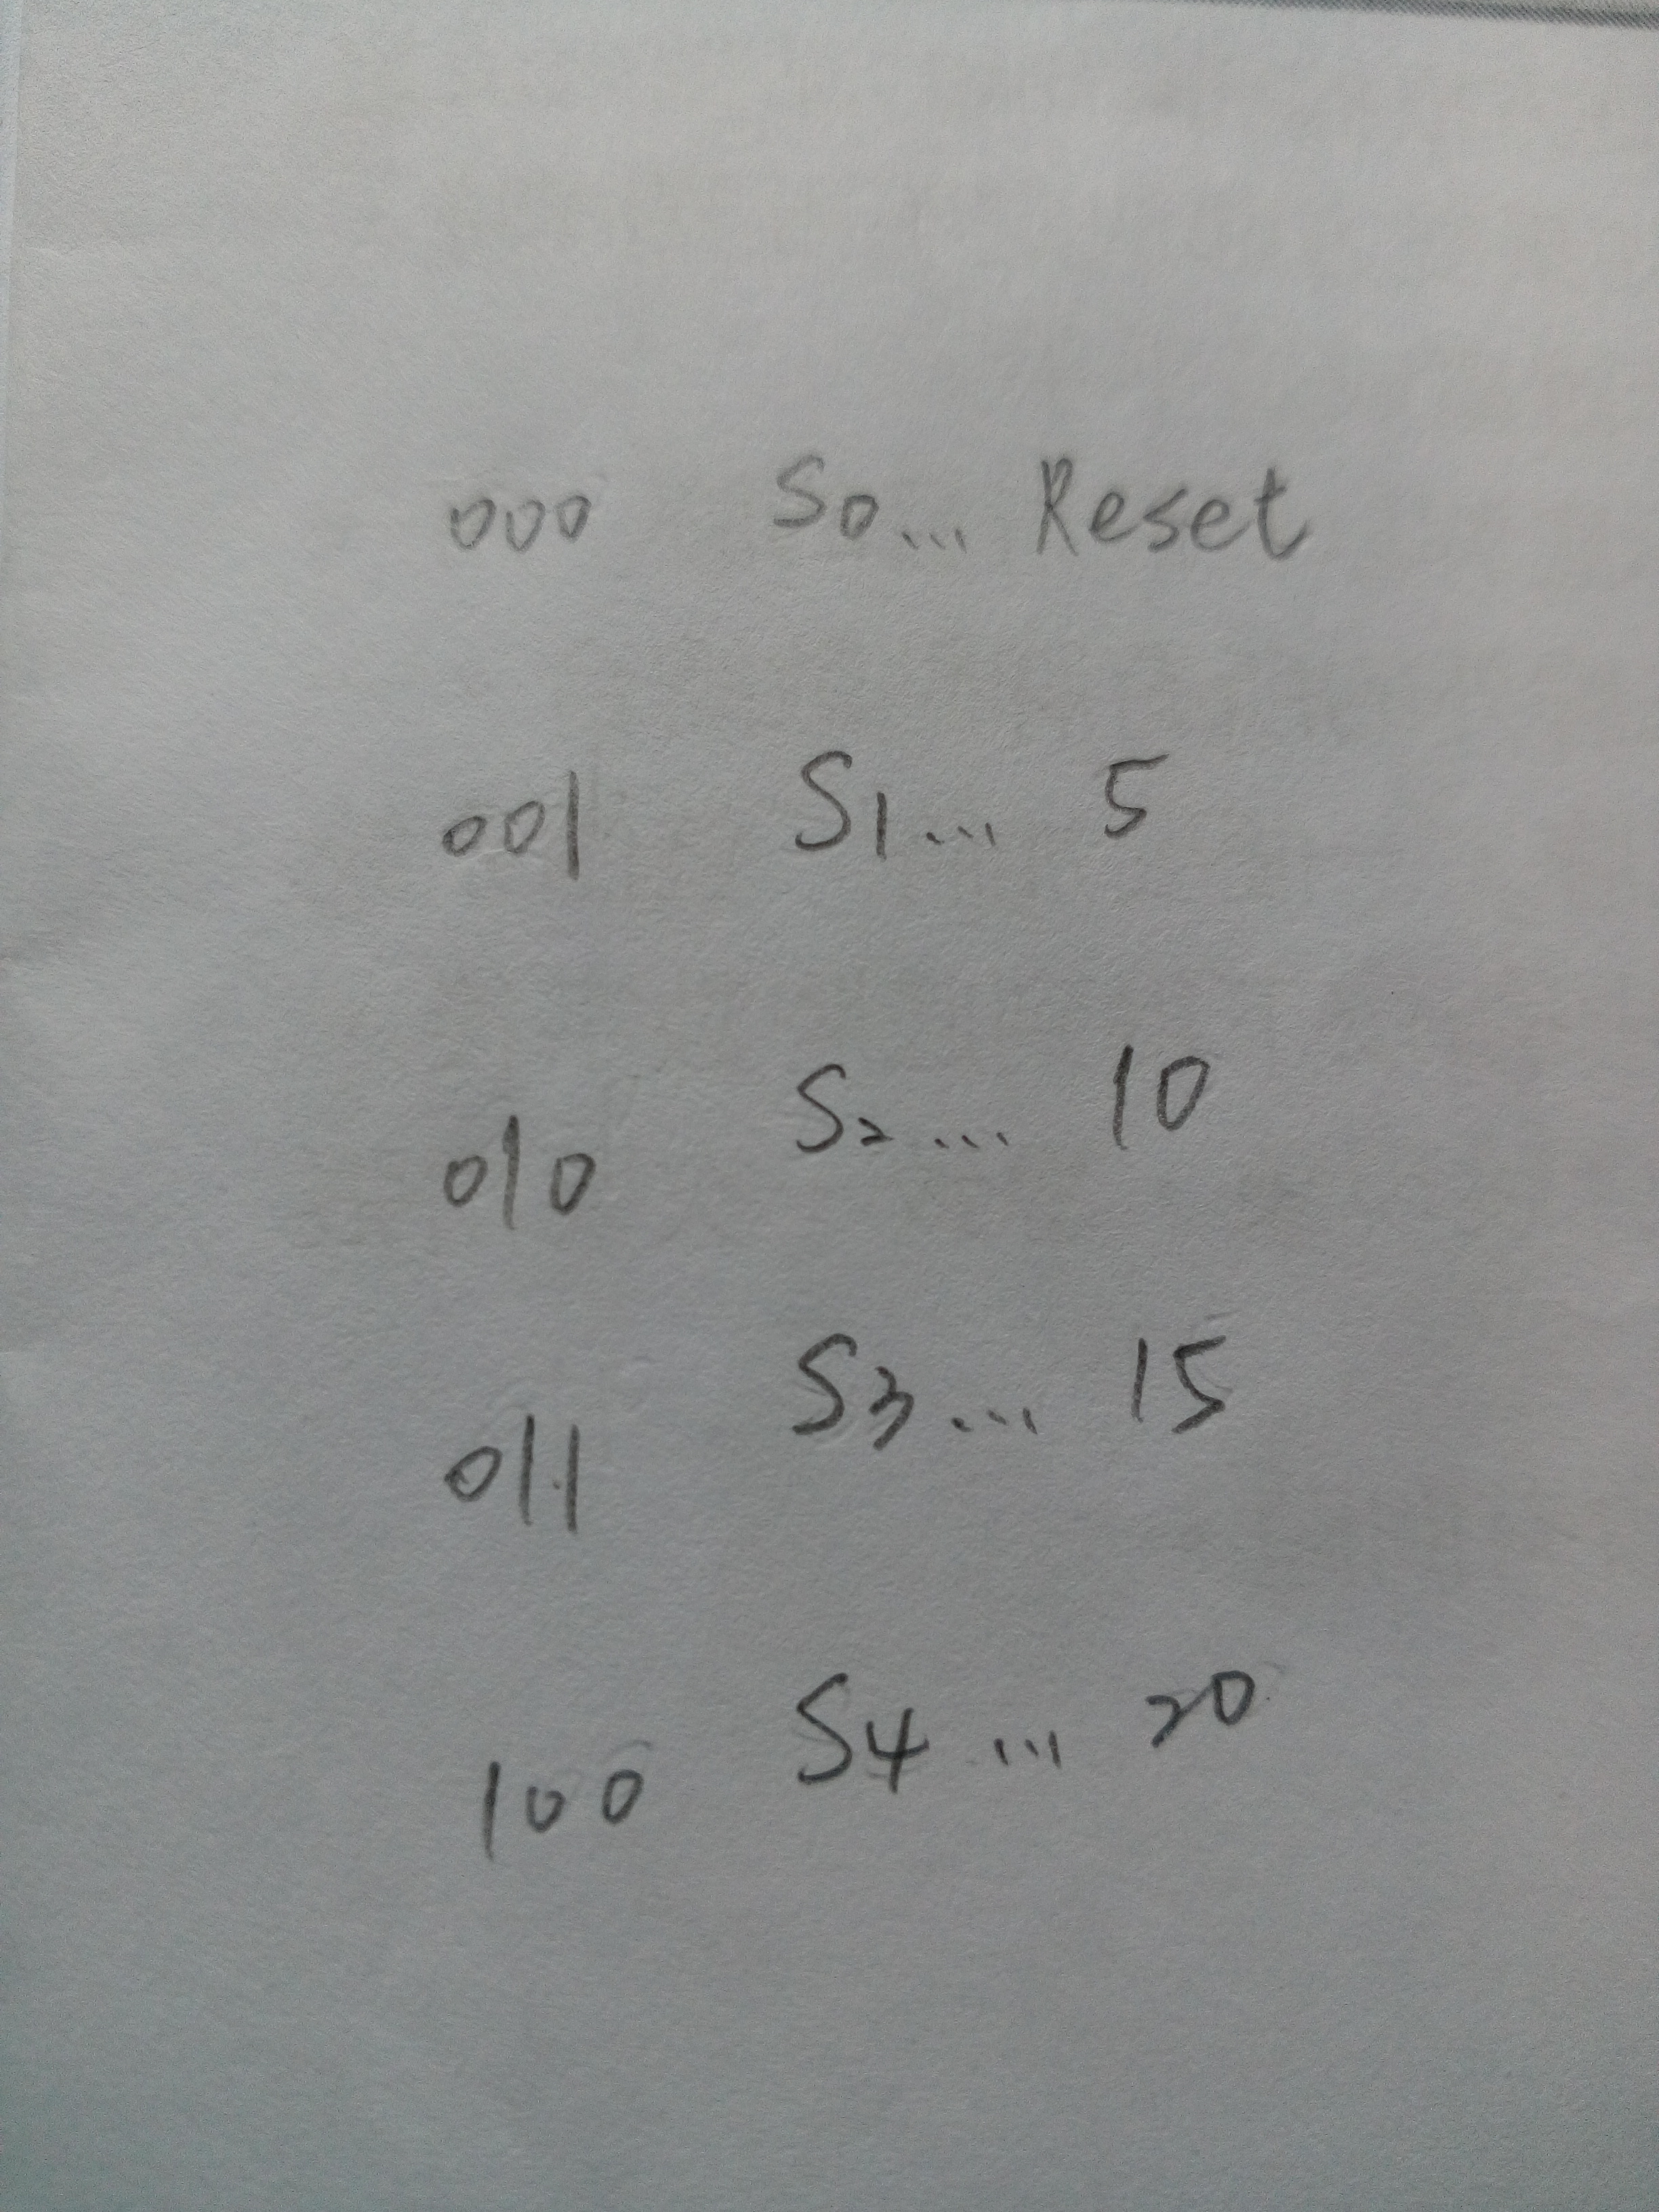 000 S0... Reset
001 S1... 5
010 S2... 10
011 S3... 15
100 S4... 20